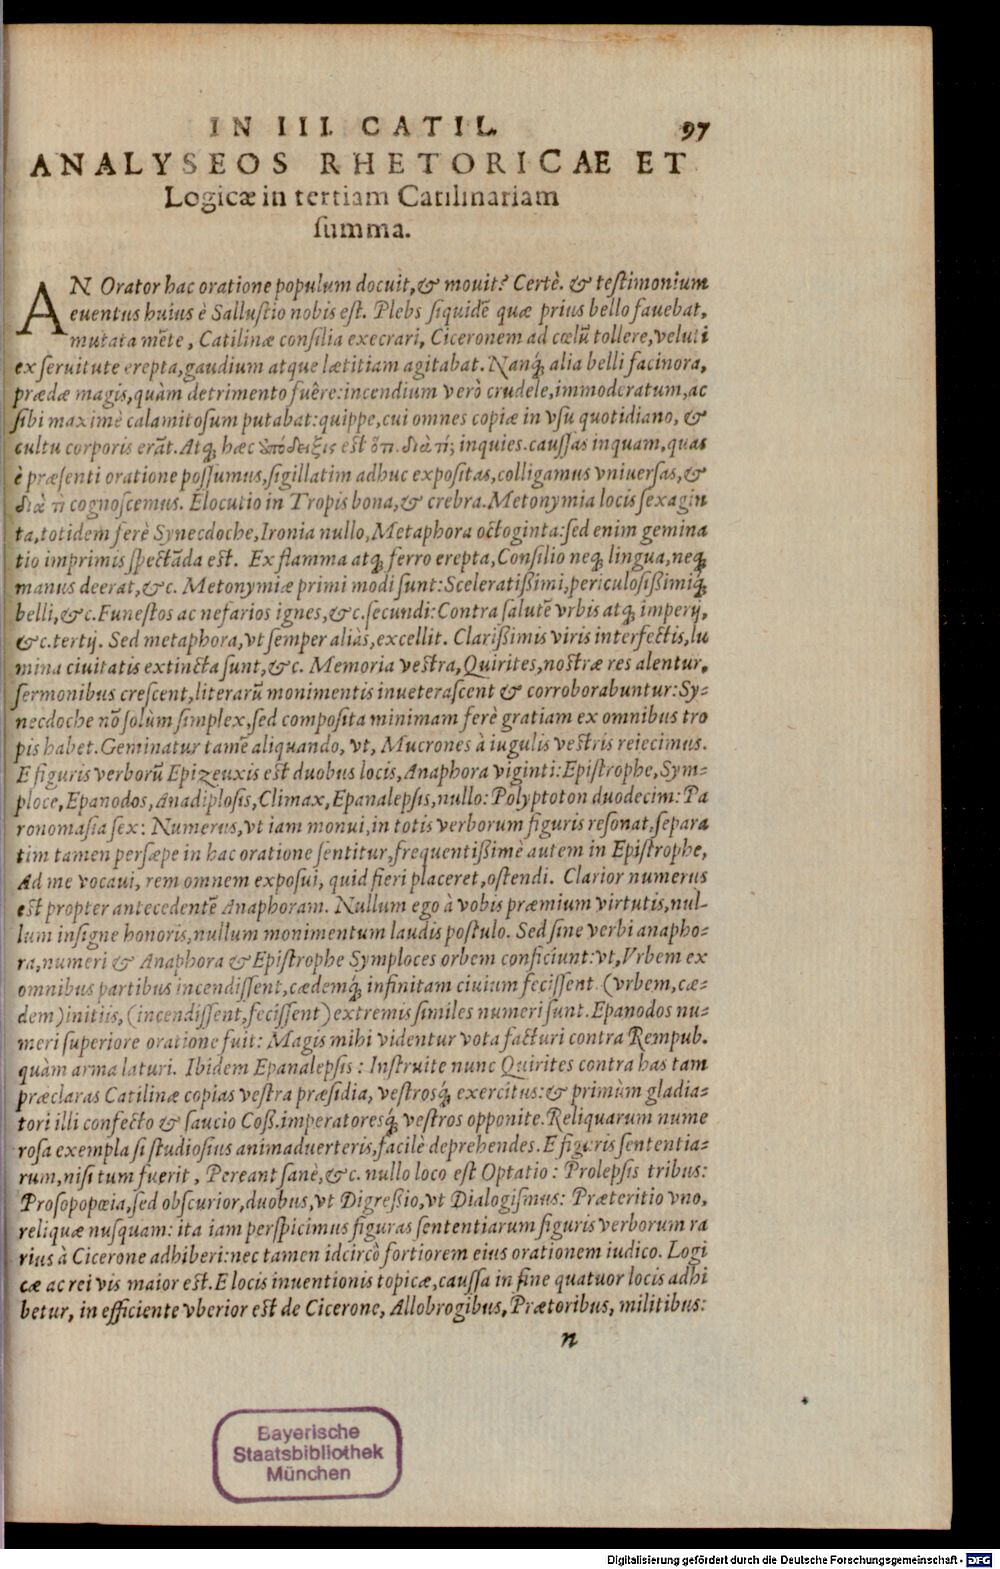 IN III. CATIL. 97
ANALYSEOS RHETORICAE ET
Logicæ in tertiam Catilinariam
ſumma.
AN Orator hac oratione populum docuit, & mouit? Certè. & teſtimonium
euentus huius è Salluſtio nobis eſt. Plebs ſiquidē quæ prius bello fauebat,
mutata mēte, Catilinæ conſilia execrari, Ciceronem ad cœlū tollere, veluti
ex ſeruitute erepta, gaudium atque lætitiam agitabat. Nanq́; alia belli facinora,
prædæ magis, quàm detrimento fuêre: incendium verò crudele, immoderatum, ac
ſibi maximè calamitoſum putabat: quippe, cui omnes copiæ in vſu quotidiano, &
cultu corporis erāt. Atq; hæc ἀπόδειξις eſt ὅτι. διὰ τί; inquies. cauſſas inquam, quas
è præſenti oratione poſſumus, ſigillatim adhuc expoſitas, colligamus vniuerſas, &
διὰ τί cognoſcemus. Elocutio in Tropis bona, & crebra. Metonymia locis ſexagin
ta, totidem ferè Synecdoche, Ironia nullo, Metaphora octoginta: ſed enim gemina
tio imprimis ſpectāda eſt. Ex flamma atq; ferro erepta, Conſilio neq; lingua, neq;
manus deerat, &c. Metonymiæ primi modi ſunt: Sceleratißimi, periculoſißimiq́;
belli, &c. Funeſtos ac nefarios ignes, &c. ſecundi: Contra ſalutē vrbis atq; imperij,
&c. tertij. Sed metaphora, vt ſemper aliàs, excellit. Clarißimis viris interfectis, lu
mina ciuitatis extincta ſunt, &c. Memoria veſtra, Quirites, noſtræ res alentur,
ſermonibus creſcent, literarū monimentis inueteraſcent & corroborabuntur: Sy=
necdoche nō ſolùm ſimplex, ſed compoſita minimam ferè gratiam ex omnibus tro
pis habet. Geminatur tamē aliquando, vt, Mucrones à iugulis veſtris reiecimus.
E figuris verborū Epizeuxis eſt duobus locis, Anaphora viginti: Epiſtrophe, Sym=
ploce, Epanodos, Anadiploſis, Climax, Epanalepſis, nullo: Polyptoton duodecim: Pa
ronomaſia ſex: Numerus, vt iam monui, in totis verborum figuris reſonat, ſepara
tim tamen perſæpe in hac oratione ſentitur, frequentißimè autem in Epiſtrophe,
Ad me vocaui, rem omnem expoſui, quid fieri placeret, oſtendi. Clarior numerus
eſt propter antecedentē Anaphoram. Nullum ego à vobis præmium virtutis, nul-
lum inſigne honoris, nullum monimentum laudis poſtulo. Sed ſine verbi anapho=
ra, numeri & Anaphora & Epiſtrophe Symploces orbem conficiunt: vt, Vrbem ex
omnibus partibus incendiſſent, cædemq́; infinitam ciuium feciſſent. (vrbem, cæ=
dem) initiis, (incendiſſent, feciſſent) extremis ſimiles numeri ſunt. Epanodos nu=
meri ſuperiore oratione fuit: Magis mihi videntur vota facturi contra Rempub.
quàm arma laturi. Ibidem Epanalepſis: Inſtruite nunc Quirites contra has tam
præclaras Catilinæ copias veſtra præſidia, veſtrosq́; exercitus: & primùm gladia=
tori illi confecto & ſaucio Coß. imperatoresq́; veſtros opponite. Reliquarum nume
roſa exempla ſi ſtudioſius animaduerteris, facilè deprehendes. E figuris ſententia=
rum, niſi tum fuerit, Pereant ſanè, &c. nullo loco eſt Optatio: Prolepſis tribus:
Proſopopœia, ſed obſcurior, duobus, vt Digreßio, vt Dialogiſmus: Præteritio vno,
reliquæ nuſquam: ita iam perſpicimus figuras ſententiarum figuris verborum ra
rius à Cicerone adhiberi: nec tamen idcircò fortiorem eius orationem iudico. Logi
cæ ac rei vis maior eſt. E locis inuentionis topicæ, cauſſa in fine quatuor locis adhi
betur, in efficiente vberior eſt de Cicerone, Allobrogibus, Prætoribus, militibus:
n
Bayerische
Staatsbibliothek
München
Digitalisierung gefördert durch die Deutsche Forschungsgemeinschaft - DFG